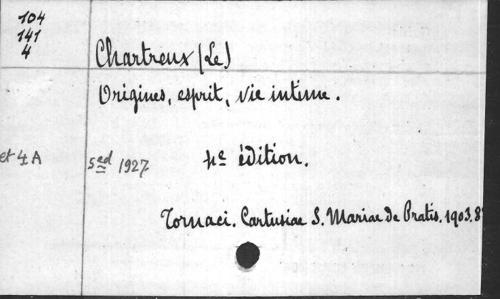 104
141
4
Chartreux (Le)
Origines, esprit, vie intime.
et 4A
5ed 1927
4e édition.
Tornaci. Cartusiae S. Mariae de Pratis. 1903. 8